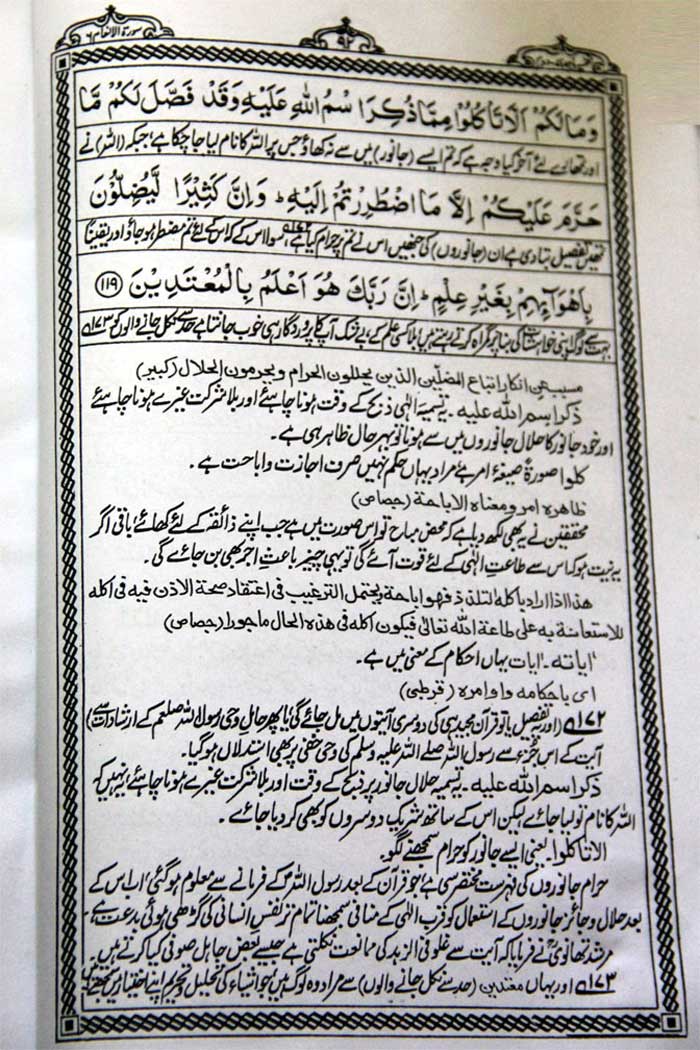 سورة الانعام ۶
۹۲
وَمَا لَكُمْ اَلَّا تَاْكُلُوْا مِمَّا ذُكِرَ اسْمُ اللّٰهِ عَلَيْهِ وَقَدْ فَصَّلَ لَكُمْ مَّا
اور تمھارے لئے آخر کیا وجہ ہے کہ تم ایسے (جانور) میں سے نہ کھاؤ جس پر اللہ کا نام لیا جا چکا ہے، جبکہ (اللہ) نے
حَرَّمَ عَلَيْكُمْ اِلَّا مَا اضْطُرِرْتُمْ اِلَيْهِ ؕ وَاِنَّ كَثِيْرًا لَّيُضِلُّوْنَ
تمھیں تفصیل بتا دی ہے ان (جانوروں) کی جنھیں اس نے تم پر حرام کیا ہے، سوا اس کے کہ اس کے لئے تم مضطر ہو جاؤ اور یقیناً
بِاَهْوَآئِهِمْ بِغَيْرِ عِلْمٍ ؕ اِنَّ رَبَّكَ هُوَ اَعْلَمُ بِالْمُعْتَدِيْنَ ﴿۱۱۹﴾
بہت سے لوگ اپنی خواہشات کی بنا پر گمراہ کرتے رہتے ہیں بلا کسی علم کے، بے شک آپ کا پروردگار ہی خوب جانتا ہے حد سے نکل جانے والوں کو ۱۷۳
مسبب عن انکار اتباع المضلین الذین یحللون الحرام ویحرمون الحلال (کبیر)
ذکر اسم اللہ علیہ ۔ یہ تسمیۂ الٰہی ذبح کے وقت ہونا چاہئے اور بلا شرکت غیرے ہونا چاہئے
اور خود جانور کا حلال جانوروں میں سے ہونا تو بہر حال ظاہر ہی ہے ۔
کلوا صورۃً صیغۂ امر ہے مراد یہاں حکم نہیں صرف اجازت و اباحت ہے ۔
ظاهره امر ومعناه الاباحة (جصاص)
محققین نے یہ بھی لکھ دیا ہے کہ محض مباح تو اس صورت میں ہے جب اپنے ذائقہ کے لئے کھائے، باقی اگر
یہ نیت ہو کہ اس سے طاعتِ الٰہی کے لئے قوت آئے گی تو یہی چیز باعثِ اجر بھی بن جائے گی ۔
هذا اذا اراد باكله التلذذ فهو اباحة يحتمل الترغيب فى اعتقاد صحة الاذن فيه فى اكله
للاستعانة به على طاعة الله تعالى فيكون اكله فى هذه الحال ماجورا (جصاص)
"ایاتہ ۔" ایات یہاں احکام کے معنی میں ہے ۔
ای باحکامه واوامره (قرطبی)
۱۷۲ (اور یہ تفصیل یا تو قرآن مجید ہی کی دوسری آیتوں میں مل جائے گی، یا پھر حاملِ وحی رسول اللہ صلعم کے ارشادات سے)
آیت کے اس جزء سے رسول اللہ صلے اللہ علیہ وسلم کی وحی خفی پر بھی استدلال ہو گیا ۔
ذکر اسم اللہ علیہ ۔ یہ تسمیہ حلال جانور پر ذبح کے وقت اور بلا شرکت غیرے ہونا چاہئے، یہ نہیں کہ
اللہ کا نام تو لیا جائے لیکن اس کے ساتھ شریک دوسروں کو بھی کر دیا جائے ۔
الا تاکلوا ۔ یعنی ایسے جانور کو حرام سمجھنے لگو ۔
حرام جانوروں کی فہرست مختصر سی ہے، جو قرآن کے بعد رسول اللہؐ کے فرمانے سے معلوم ہو گئی، اب اس کے
بعد حلال و جائز جانوروں کے استعمال کو قرب الٰہی کے منافی سمجھنا تمام تر نفسِ انسانی کی گڑھی ہوئی بدعت ہے ۔
مرشد تھانویؒ نے فرمایا کہ آیت سے غلو فی الزہد کی ممانعت نکلتی ہے جیسے بعض جاہل صوفی کیا کرتے ہیں ۔
۱۷۳ اور یہاں معتدین (حد سے نکل جانے والوں) سے مراد وہ لوگ ہیں جو اشیاء کی تحلیل و تحریم اپنے اختیار میں سمجھتے ہیں